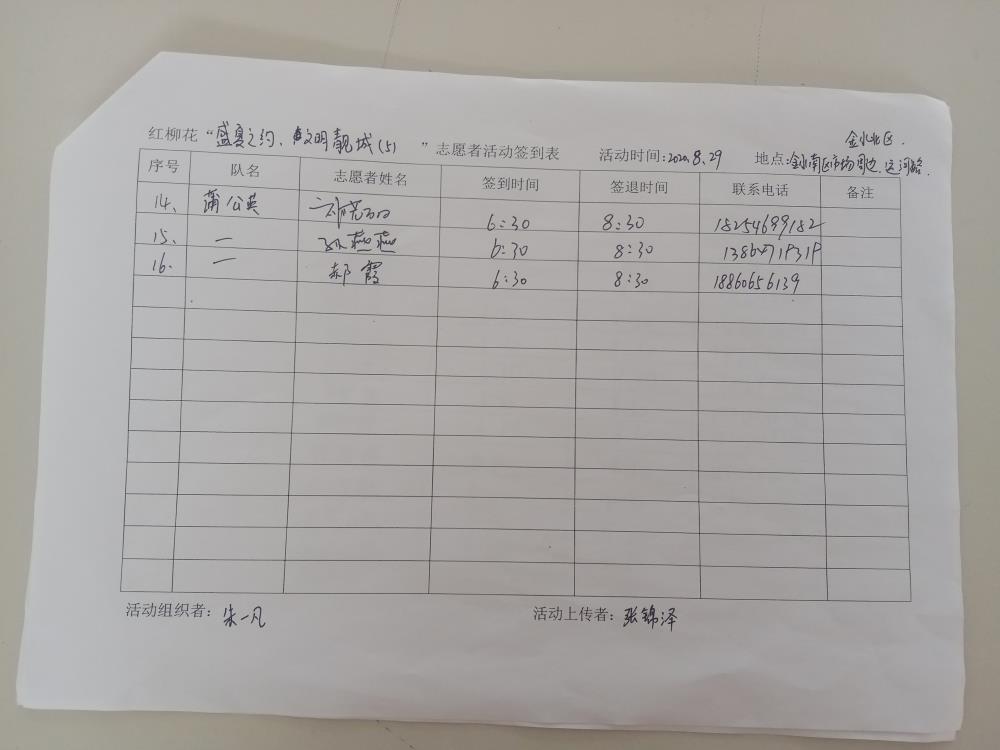 金水北区.
红柳花“盛夏之约、文明靓城(5) ”志愿者活动签到表 活动时间:2020.8.29 地点:金水南区市场周边.运河路.
序号 队名 志愿者姓名 签到时间 签退时间 联系电话 备注
14、 蒲公英 6:30 8:30 18254699182
15、 一 孙燕燕 6:30 8:30
16. 一 郝霞 6:30 8:30 18860656139
活动组织者:朱一凡 活动上传者:张锦泽